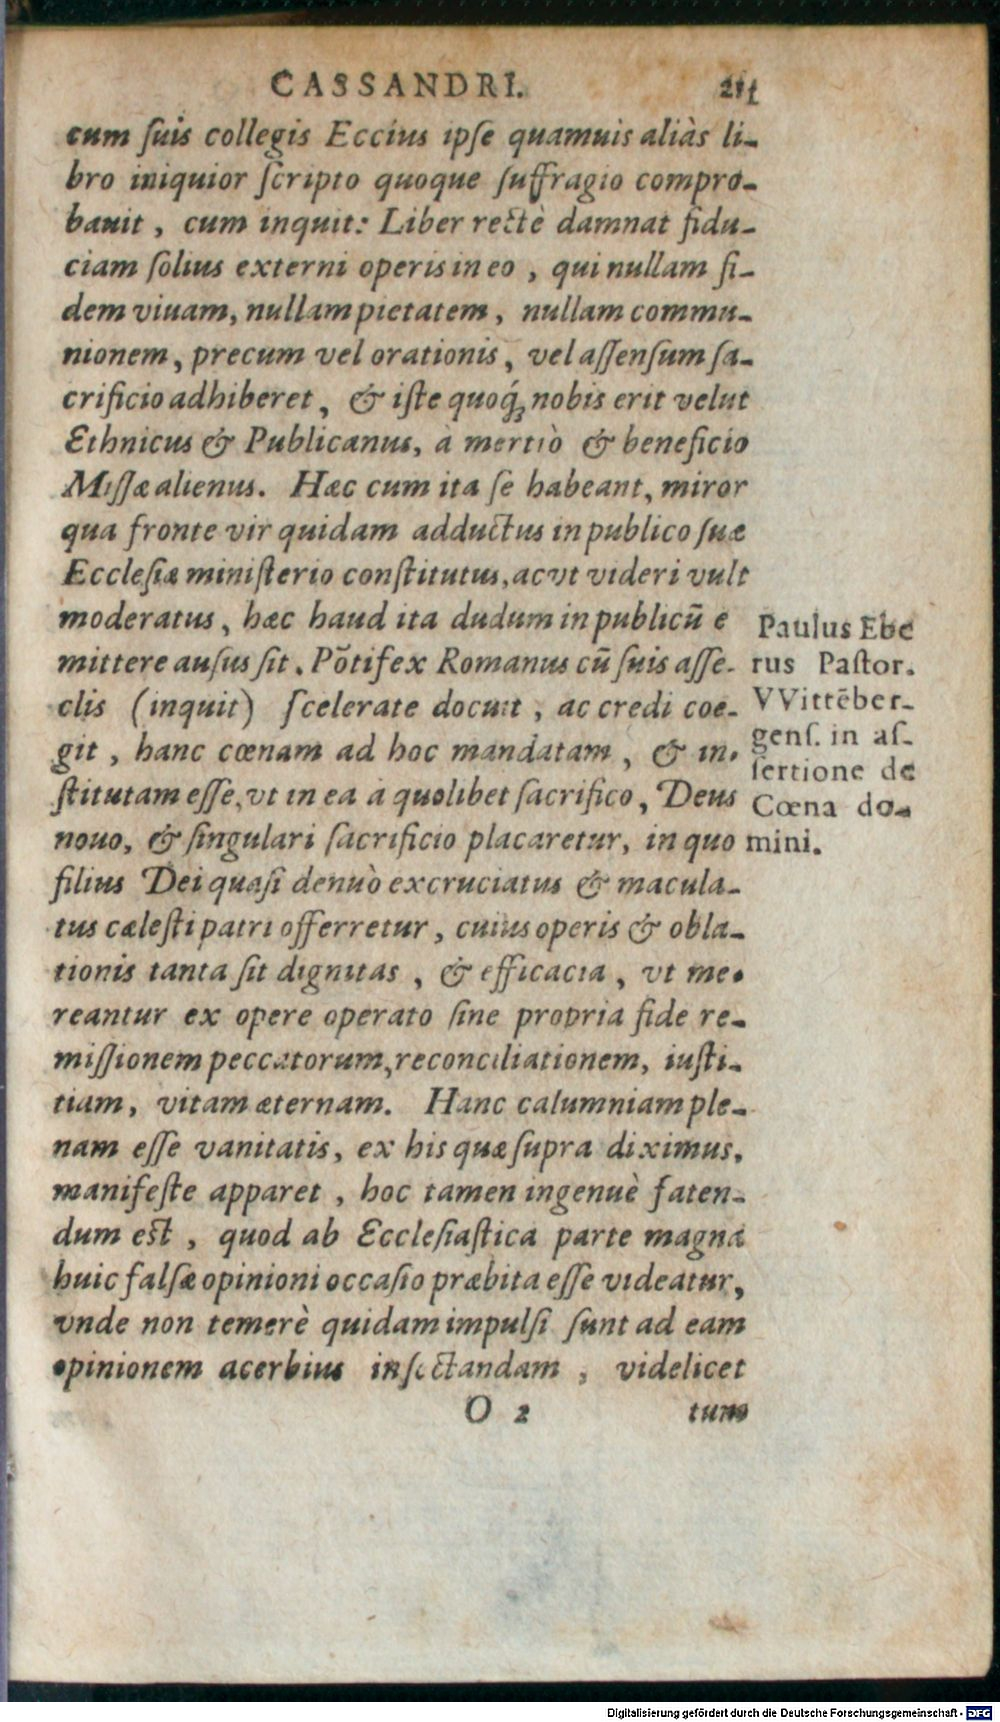 CASSANDRI. 211
cum ſuis collegis Eccius ipſe quamuis aliàs li-
bro iniquior ſcripto quoque ſuffragio compro-
bauit, cum inquit: Liber rectè damnat fidu-
ciam ſolius externi operis in eo, qui nullam fi-
dem viuam, nullam pietatem, nullam commu-
nionem, precum vel orationis, vel aſſenſum ſa-
crificio adhiberet, & iſte quoq́ꝫ nobis erit velut
Ethnicus & Publicanus, à mertiò & beneficio
Miſſæ alienus. Hæc cum ita ſe habeant, miror
qua fronte vir quidam adductus in publico ſuæ
Eccleſiæ miniſterio conſtitutus, ac vt videri vult
moderatus, hæc haud ita dudum in publicũ e
mittere auſus ſit. Põtifex Romanus cũ ſuis aſſe-
clis (inquit) ſcelerate docuit, ac credi coe-
git, hanc cœnam ad hoc mandatam, & in-
ſtitutam eſſe, vt in ea à quolibet ſacrifico, Deus
nouo, & ſingulari ſacrificio placaretur, in quo
filius Dei quaſi denuò excruciatus & macula-
tus cæleſti patri offerretur, cuius operis & obla-
tionis tanta ſit dignitas, & efficacia, vt me-
reantur ex opere operato ſine propria fide re-
miſſionem peccatorum, reconciliationem, iuſti-
tiam, vitam æternam. Hanc calumniam ple-
nam eſſe vanitatis, ex his quæ ſupra diximus,
manifeſte apparet, hoc tamen ingenuè faten-
dum eſt, quod ab Eccleſiaſtica parte magna
huic falſæ opinioni occaſio præbita eſſe videatur,
vnde non temerè quidam impulſi ſunt ad eam
opinionem acerbius inſectandam, videlicet
O 2 tum
Paulus Ebe
rus Paſtor.
VVittẽber-
genſ. in aſ-
ſertione de
Cœna do-
mini.
Digitalisierung gefördert durch die Deutsche Forschungsgemeinschaft - DFG